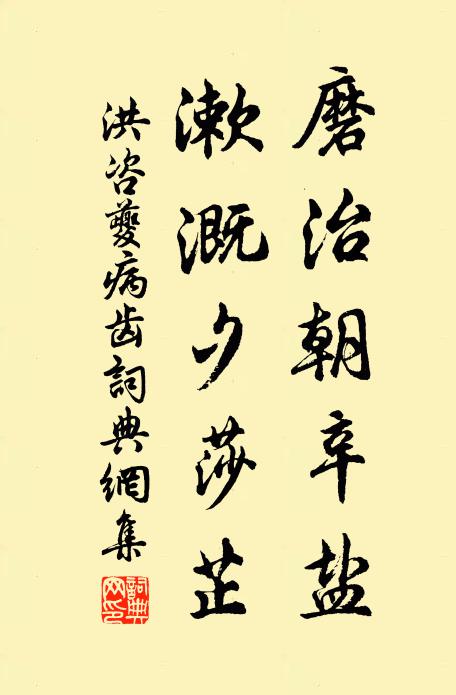 磨治朝辛盐
漱溉夕莎芷
洪咨夔病齿詞典網集
詞典网印